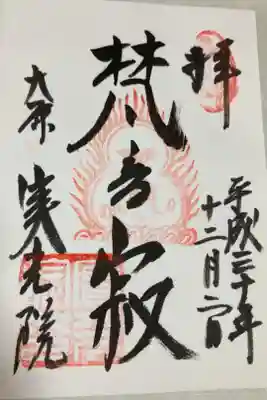 拝
平成三十年
十二月二日
梵音寂
大原
実光院